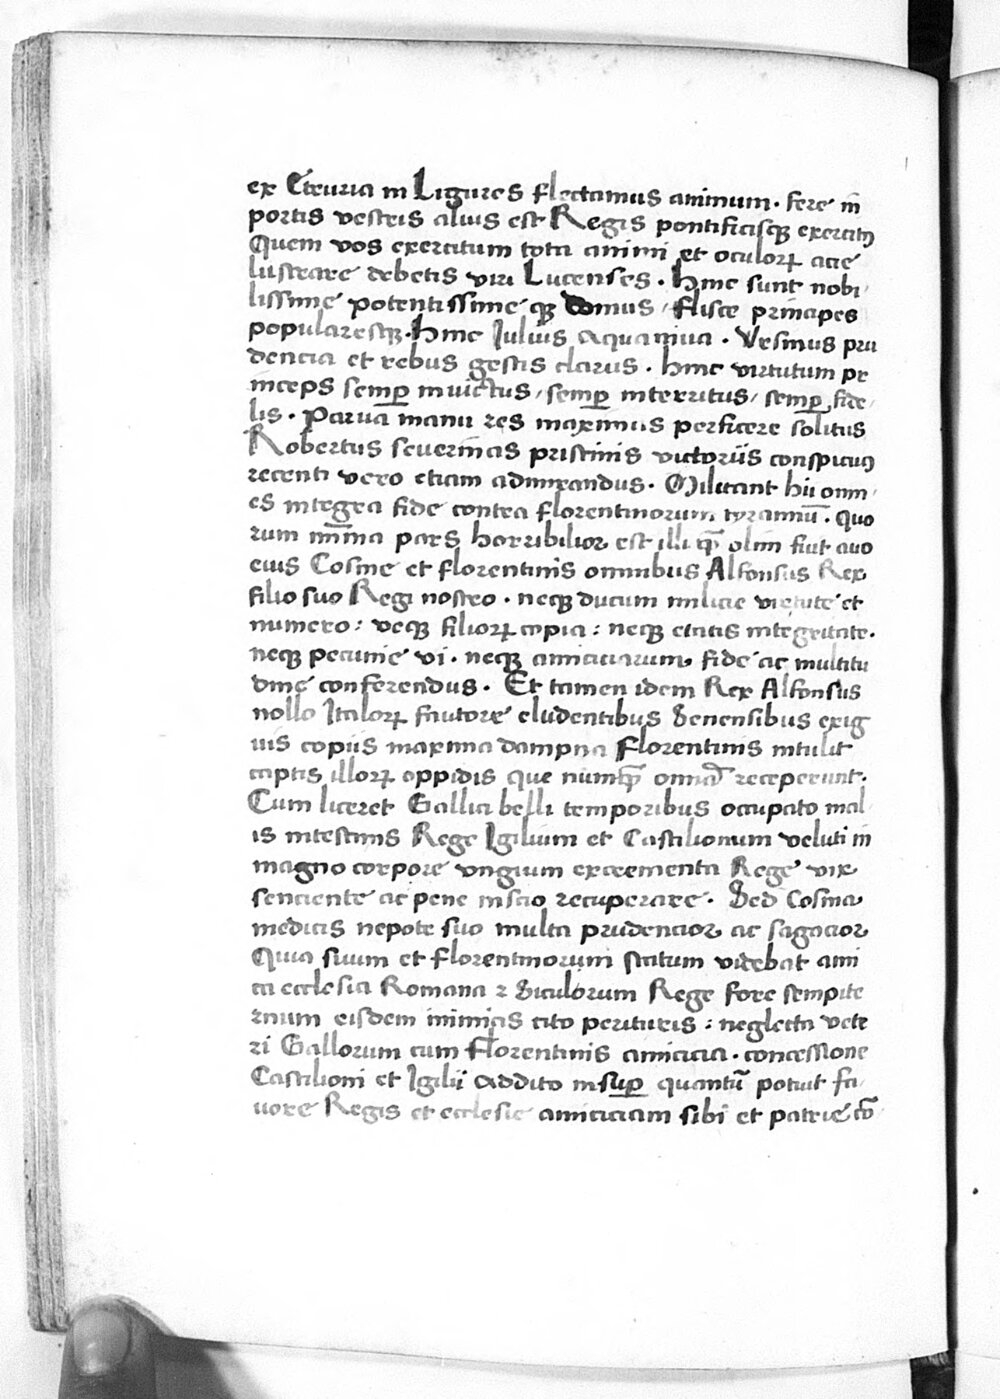 ex Etruria in Ligures flectamus animum. fere in̄
portis vestris alius est Regis pontificisqꝫ exercitꝰ
Quem vos exercitum tota animi et oculoꝝ acie
lustrare debetis viri Lucenses. hinc sunt nobi
lissime potentissime qꝫ domus / flisce principes
popularesqꝫ. hinc Julius aquaviva. Vrsinus pru
dencia et rebus gestis clarus. hinc virtutum pr
inceps semꝑ invictus / semꝑ interritus / semꝑ fide
lis. Parva manu res maximas perficere solitus
Robertus severinas pristinis victoriis conspicuꝰ
recenti vero etiam admirandus. Militant hii omn
es integra fide contra florentinorum tyrannū. quo
rum minīa pars horribilior est illi qꝫ̄ olim fuit avo
eius Cosme et florentinis omnibus Alfonsus Rex
filio suo Regi nostro. neqꝫ ducum milicie virtute et
numero: veqꝫ filioꝝ copia: neqꝫ etatis integritate.
neqꝫ pecunie vi. neqꝫ amiciciarum fide ac multitu
dine conferendus. Et tamen idem Rex Alfonsus
nollo Italoꝝ fautore eludentibus Senensibus exig
uis copiis maxima dampna Florentinis intulit
captis illoꝝ oppidis que numqꝫ̄ receperunt.
Cum liceret Gallici belli temporibus occupato mal
is intestinis Rege Igilium et Castilionum veluti in
magno corpore ungium excrementa Rege vix
senciente ac pene inscio recuperare. Sed Cosma
medicis nepote suo multa prudencior ac sagacior
Quia suum et florentinorum statum videbat ami
ca ecclesia Romana ⁊ Siculorum Rege fore sempite
rnum eisdem inimicis cito perituris: neglecta vete
ri Gallorum cum Florentinis amicicia. concessione
Castilioni et Igilii addito insuꝑ quantū potuit fa
vore Regis et ecclesie amiciciam sibi et patrie cō